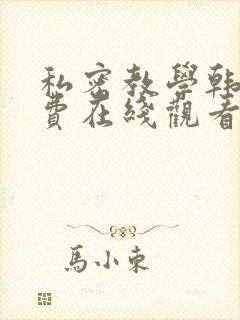 私密教學韩
費在綫觀看
馬小東